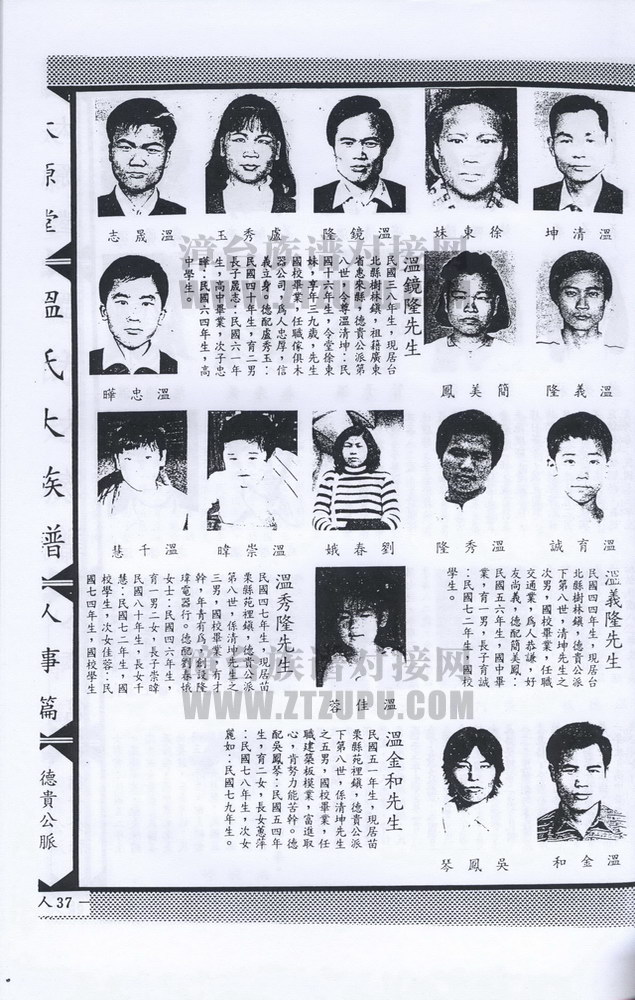 溫清坤
徐東妹
溫鏡隆
盧秀玉
溫晟志
溫義隆
簡美鳳
溫鏡隆先生
民國三八年生，現居台
北縣樹林鎮，祖籍廣東
省惠來縣，德貴公派第
八世，令尊溫清坤：民
國十六年生，令堂徐東
妹，享年三九歲，先生
國校畢業，任職傢俱木
器公司，爲人忠厚，信
義立身。德配盧秀玉：
民國四十年生，育二男
長子晟志：民國六一年
生，高中畢業，次子忠
曄：民國六四年生，高
中學生。
溫忠曄
溫育誠
溫秀隆
劉春娥
溫崇暐
溫千慧
溫義隆先生
民國四四年生，現居台
北縣樹林鎮，德貴公派
下第八世，清坤先生之
次男，國校畢業，任職
交通業，爲人恭謙，好
友尚義，德配簡美鳳：
民國五六年生，國中畢
業，育一男，長子育誠
：民國七二年生，國校
學生。
溫佳蓉
溫秀隆先生
民國四七年生，現居苗
栗縣苑裡鎮，德貴公派
第八世，係清坤先生之
三男，國校畢業，有才
幹，年青有爲，創設隆
瑋電器行。德配劉春娥
女士：民國四六年生，
育一男二女，長子崇暐
民國八十年生，長女千
慧：民國七二年生，國
校學生，次女佳蓉：民
國七四年生，國校學生
溫金和
吳鳳琴
溫金和先生
民國五一年生，現居苗
栗縣苑裡鎮，德貴公派
下第八世，係清坤先生
之五男，國校畢業，任
職建築板模業，富進取
心，肯努力能苦幹。德
配吳鳳琴：民國五四年
生，育二女，長女蕙萍
：民國七八年生，次女
麗如：民國七九年生。
太原堂
溫氏大族譜
人事篇
德貴公脈
人 37
漳台族谱对接网
WWW.ZTZUPU.COM
漳台族谱对接网
WWW.ZTZUPU.COM